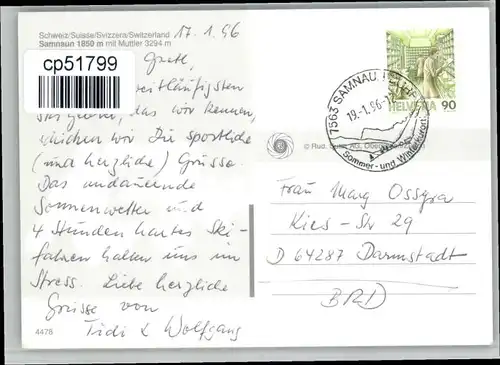 Schweiz/Suisse/Svizzera/Switzerland
Samnaun 1850 m mit Muttler 3294 m
17.1.96
cp51799
Gretl,
weitläufigsten
das wir kennen,
wir Dir sportliche
(und herzliche) Grüsse.
Das andauernde
Sonnenwetter und
4 Stunden hartes Ski-
fahren halten uns im
Stress. Liebe herzliche
Grüsse von
Tidi & Wolfgang
4478
7563 SAMNAUN
19.-1.96
Sommer- und Wintersport
HELVETIA 90
© Rud. Suter AG,
Frau Marg Ossyra
Kies-Str 29
D 64287 Darmstadt
BRD